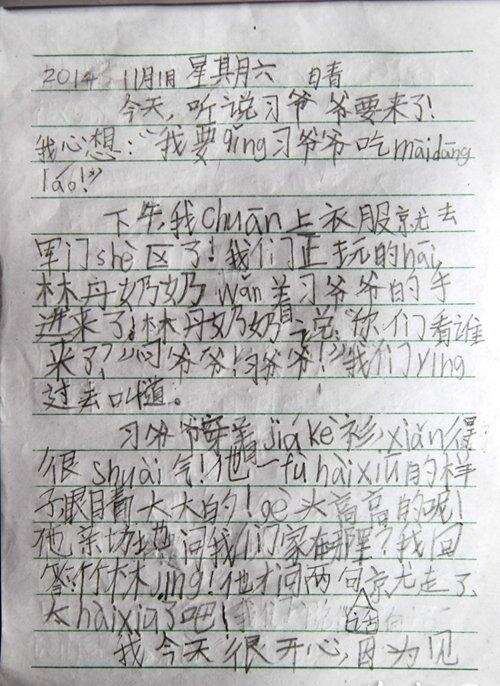 2014 11月1日 星其月六 日青
今天,听说习爷爷要来了!
我心想:"我要qǐng习爷爷吃màidāng
láo!"
下午,我chuān上衣服就去
军门shè区了!我们正玩的hāi,
林丹奶奶wǎn着习爷爷的手
进来了,林丹奶奶说"你们看谁
来了?""习爷爷!习爷爷!"我们yíng
过去叫道。
习爷爷穿着jiákè衫,xiǎn得
很shuài气!他一fù hàixiū的样
子眼睛大大的!gè头高高的呢!
他亲切地问我们家在哪里?我回
答:竹林jìng!他才问两句就走了,
太hàixiū了吧!
我今天很开心,因为见